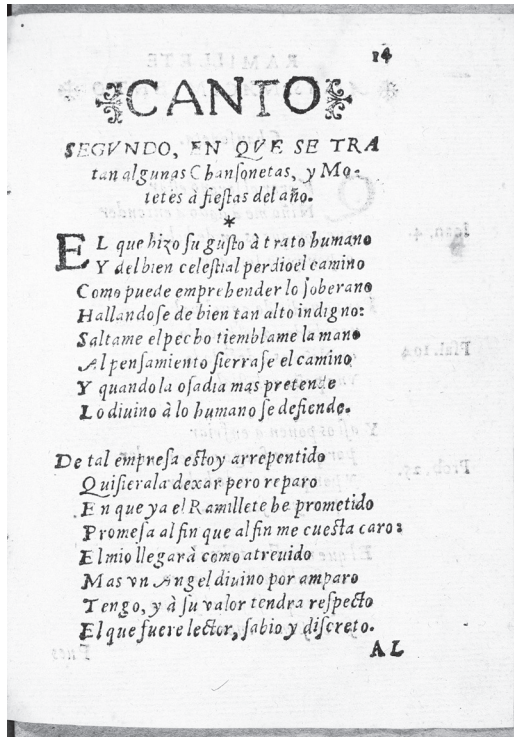 14
CANTO
SEGVNDO, EN QVE SE TRA
tan algunas Chansonetas, y Mo-
tetes à fiestas del año.
*
EL que hizo su gusto à trato humano
Y del bien celestial perdio el camino
Como puede emprehender lo soberano
Hallandose de bien tan alto indigno:
Saltame el pecho tiemblame la mano
Al pensamiento sierrase el camino
Y quando la osadia mas pretende
Lo diuino à lo humano se defiende.
De tal empresa estoy arrepentido
Quisierala dexar pero reparo
En que ya el Ramillete he prometido
Promesa al fin que al fin me cuesta caro:
El mio llegarà como atreuido
Mas vn Angel diuino por amparo
Tengo, y à su valor tendra respecto
El que fuere lector, sabio y discreto.
AL